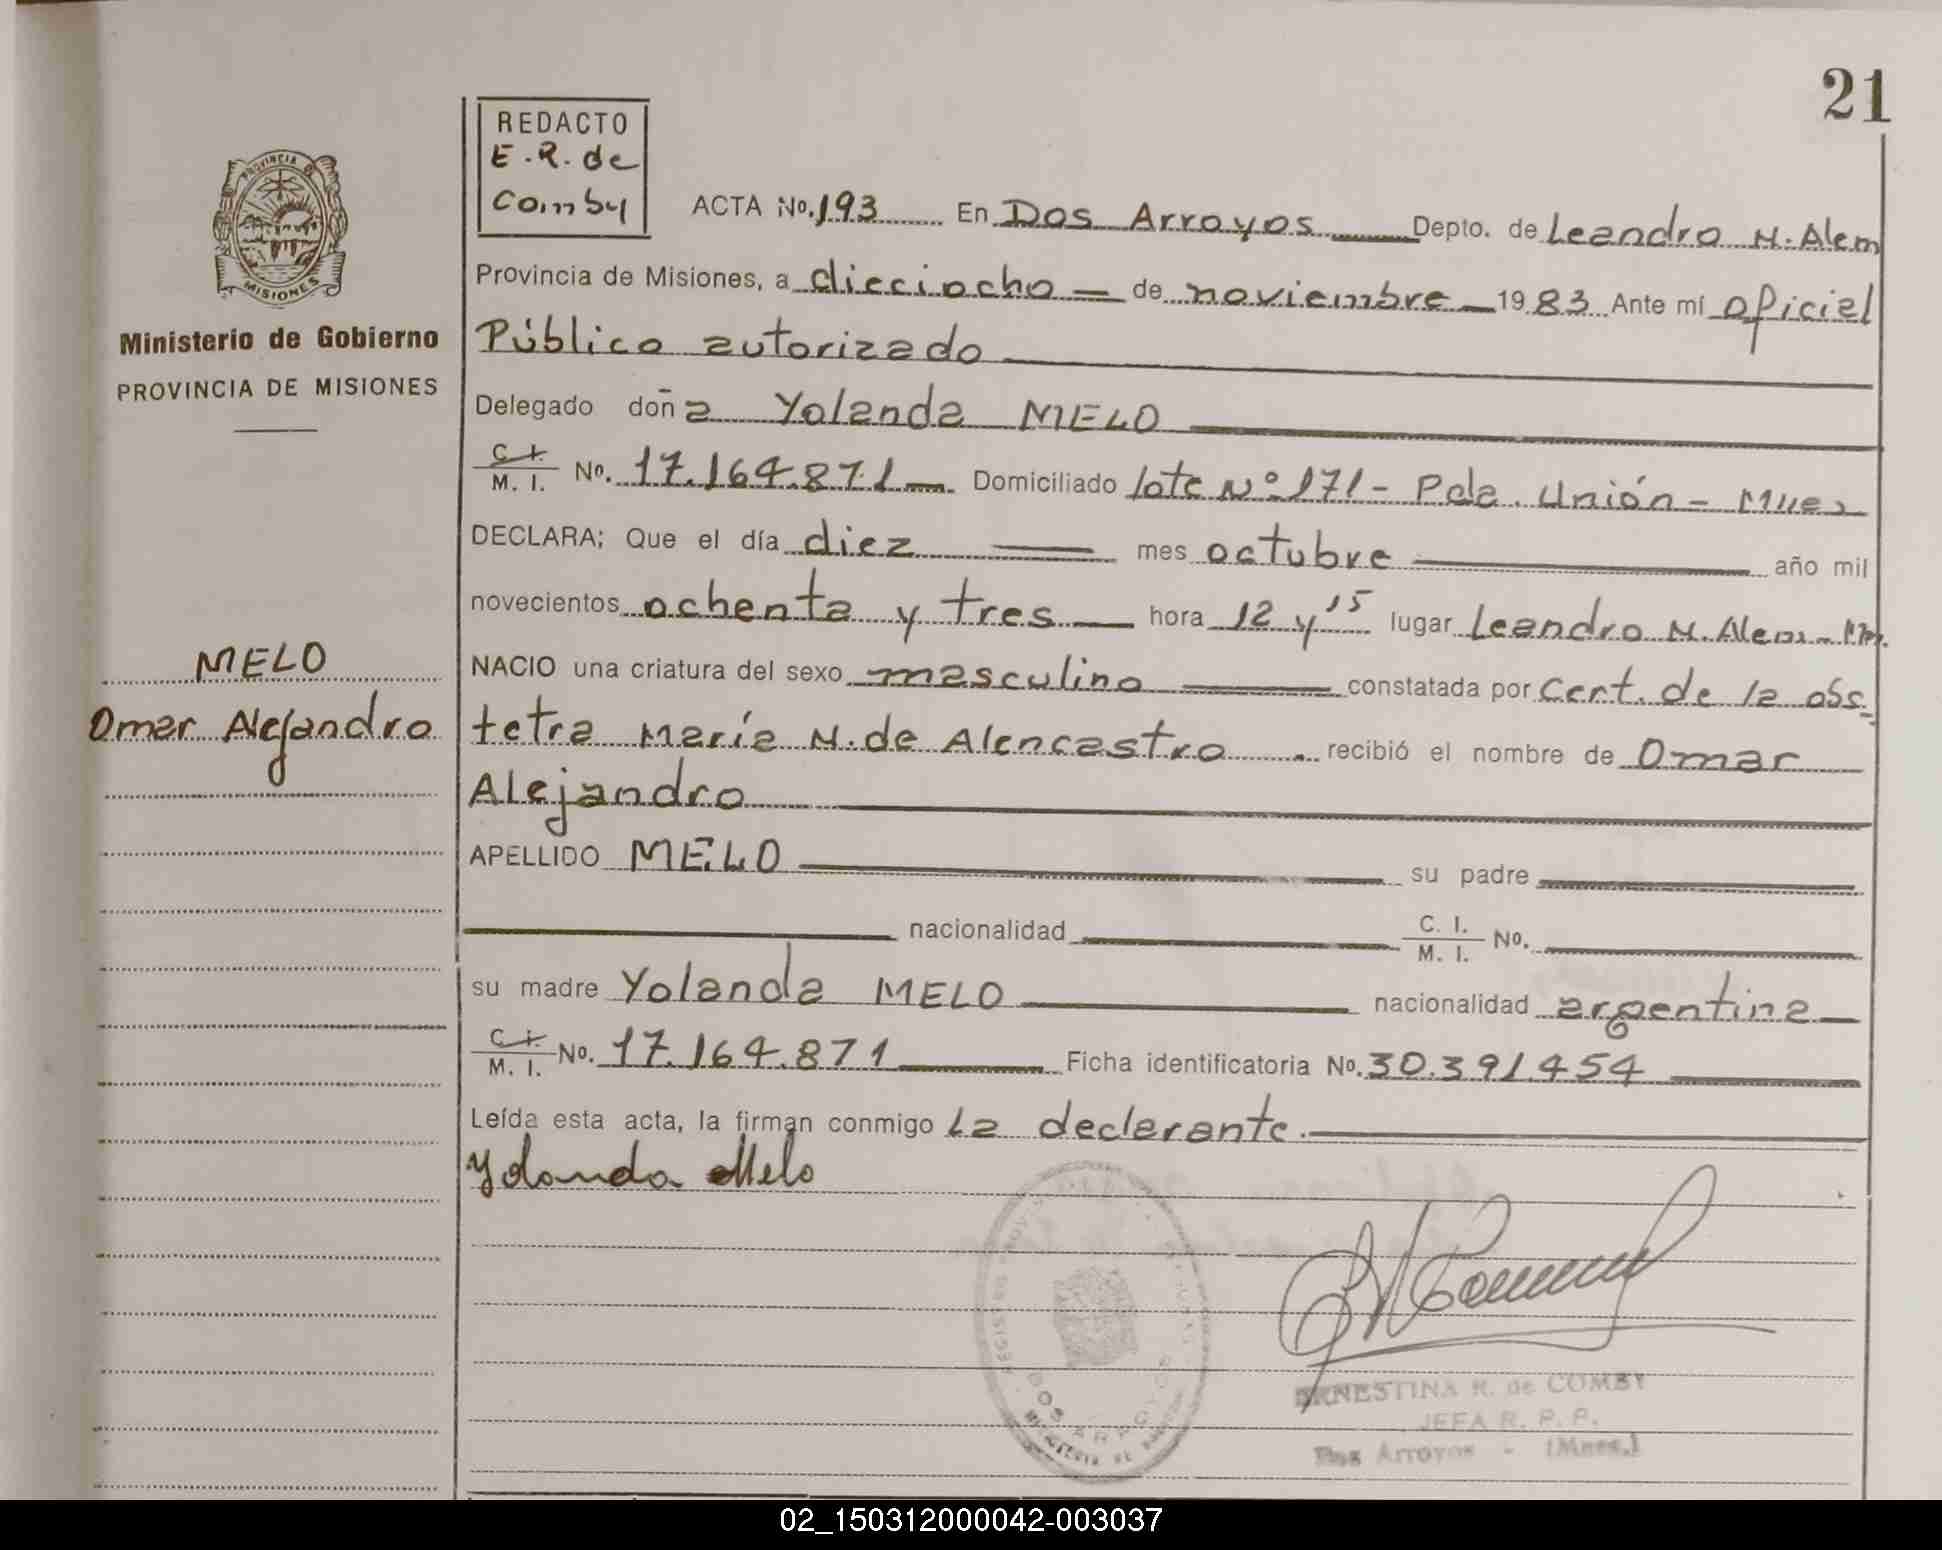 21
REDACTO
E.R. de
Comby
PROVINCIA
MISIONES
Ministerio de Gobierno
PROVINCIA DE MISIONES
ACTA No. 193 En Dos Arroyos Depto. de Leandro N. Alem
Provincia de Misiones, a dieciocho de noviembre 1983 Ante mí oficial
Público autorizado
Delegado doña Yolanda MELO
C. I. M. I. No. 17.164.871 Domiciliado lote Nº 171 - Pda. Unión - Mnes
DECLARA; Que el día diez mes octubre año mil
novecientos ochenta y tres hora 12 y 15 lugar Leandro N. Alem - Mns.
MELO
NACIO una criatura del sexo masculino constatada por Cert. de la obs-
Omar Alejandro
tetra María N. de Alencastro recibió el nombre de Omar
Alejandro
APELLIDO MELO su padre
nacionalidad C. I. M. I. No.
su madre Yolanda MELO nacionalidad argentina
C. I. M. I. No. 17.164.871 Ficha identificatoria No. 30.391.454
Leída esta acta, la firman conmigo la declarante.
Yolanda Melo
DOS ARROYOS
ERNESTINA R. de COMBY
JEFA R. P. P.
Dos Arroyos - (Mnes.)
02_150312000042-003037